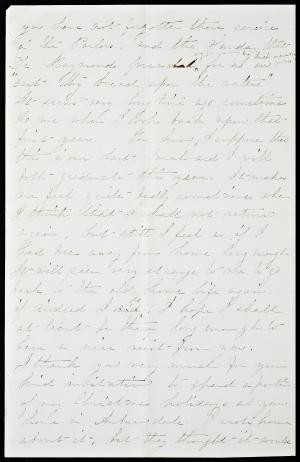 you have not forgotten those services
in the Parlors, and the Sunday that
Dr. Raymond preached for us on
"cast thy bread upon the waters."
It seems very long time ago sometimes
to me when I look back upon that
first year. You know, I suppose that
this is our last. Sarah and I will
both graduate this year. It makes
me feel quite badly sometimes when
I think that I shall not return
again, but still I feel as if I
had been away from home long enough.
It will seem very strange to me to go
back to the old home life again
if indeed I do. I hope I shall
at least be there long enough to
have a nice visit from you.
I thank you very much for your
kind invitation to spend a portion
of my Christmas holidays at your
home in Auburndale. I wrote home
about it, but they thought it would